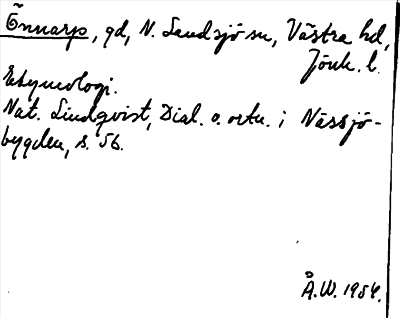 Önnarp, gd, N. Sandsjö sn, Västra hd,
Jönk. l.
Etymologi.
Nat. Lindqvist, Dial. o. ortn. i Nässjö-
bygden, s. 56.
Å.W. 1954.